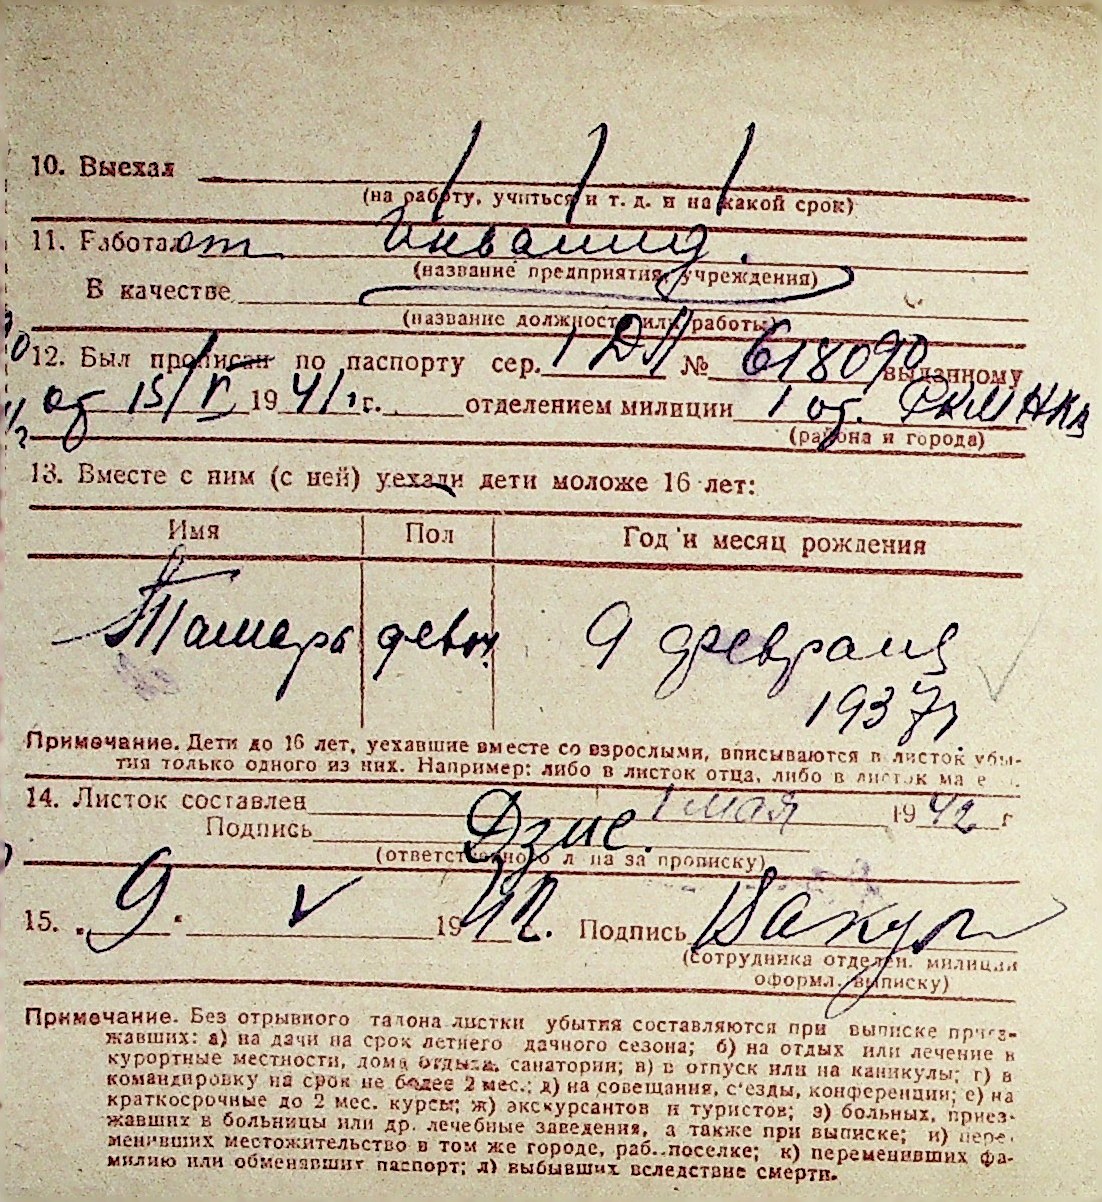 10. Выехал
(на работу, учиться и т. д. и на какой срок)
11. Работает Инвалид.
(название предприятия, учреждения)
В качестве
(название должности или работы)
12. Был прописан по паспорту сер. 1 ДЛ № 618090 выданному
от 15/V 1941 г. отделением милиции 1 от. РКМ НКВ
(района и города)
13. Вместе с ним (с ней) уехали дети моложе 16 лет:
Имя Пол Год и месяц рождения
Тамара девч. 9 февраля
1937г
Примечание. Дети до 16 лет, уехавшие вместе со взрослыми, вписываются в листок убы-
тия только одного из них. Например: либо в листок отца, либо в листок ма е
14. Листок составлен 1 мая 1942 г
Подпись
(ответственного лица за прописку)
15. 9. V 1942. Подпись
(сотрудника отделен. милиции
оформл. выписку)
Примечание. Без отрывного талона листки убытия составляются при выписке приез-
жавших: а) на дачи на срок летнего дачного сезона; б) на отдых или лечение в
курортные местности, дома отдыха, санатории; в) в отпуск или на каникулы; г) в
командировку на срок не более 2 мес.; д) на совещания, с'езды, конференции; е) на
краткосрочные до 2 мес. курсы; ж) экскурсантов и туристов; з) больных, приез-
жавших в больницы или др. лечебные заведения, а также при выписке; и) пере-
менивших местожительство в том же городе, раб. поселке; к) переменивших фа-
милию или обменявших паспорт; л) выбывших вследствие смерти.